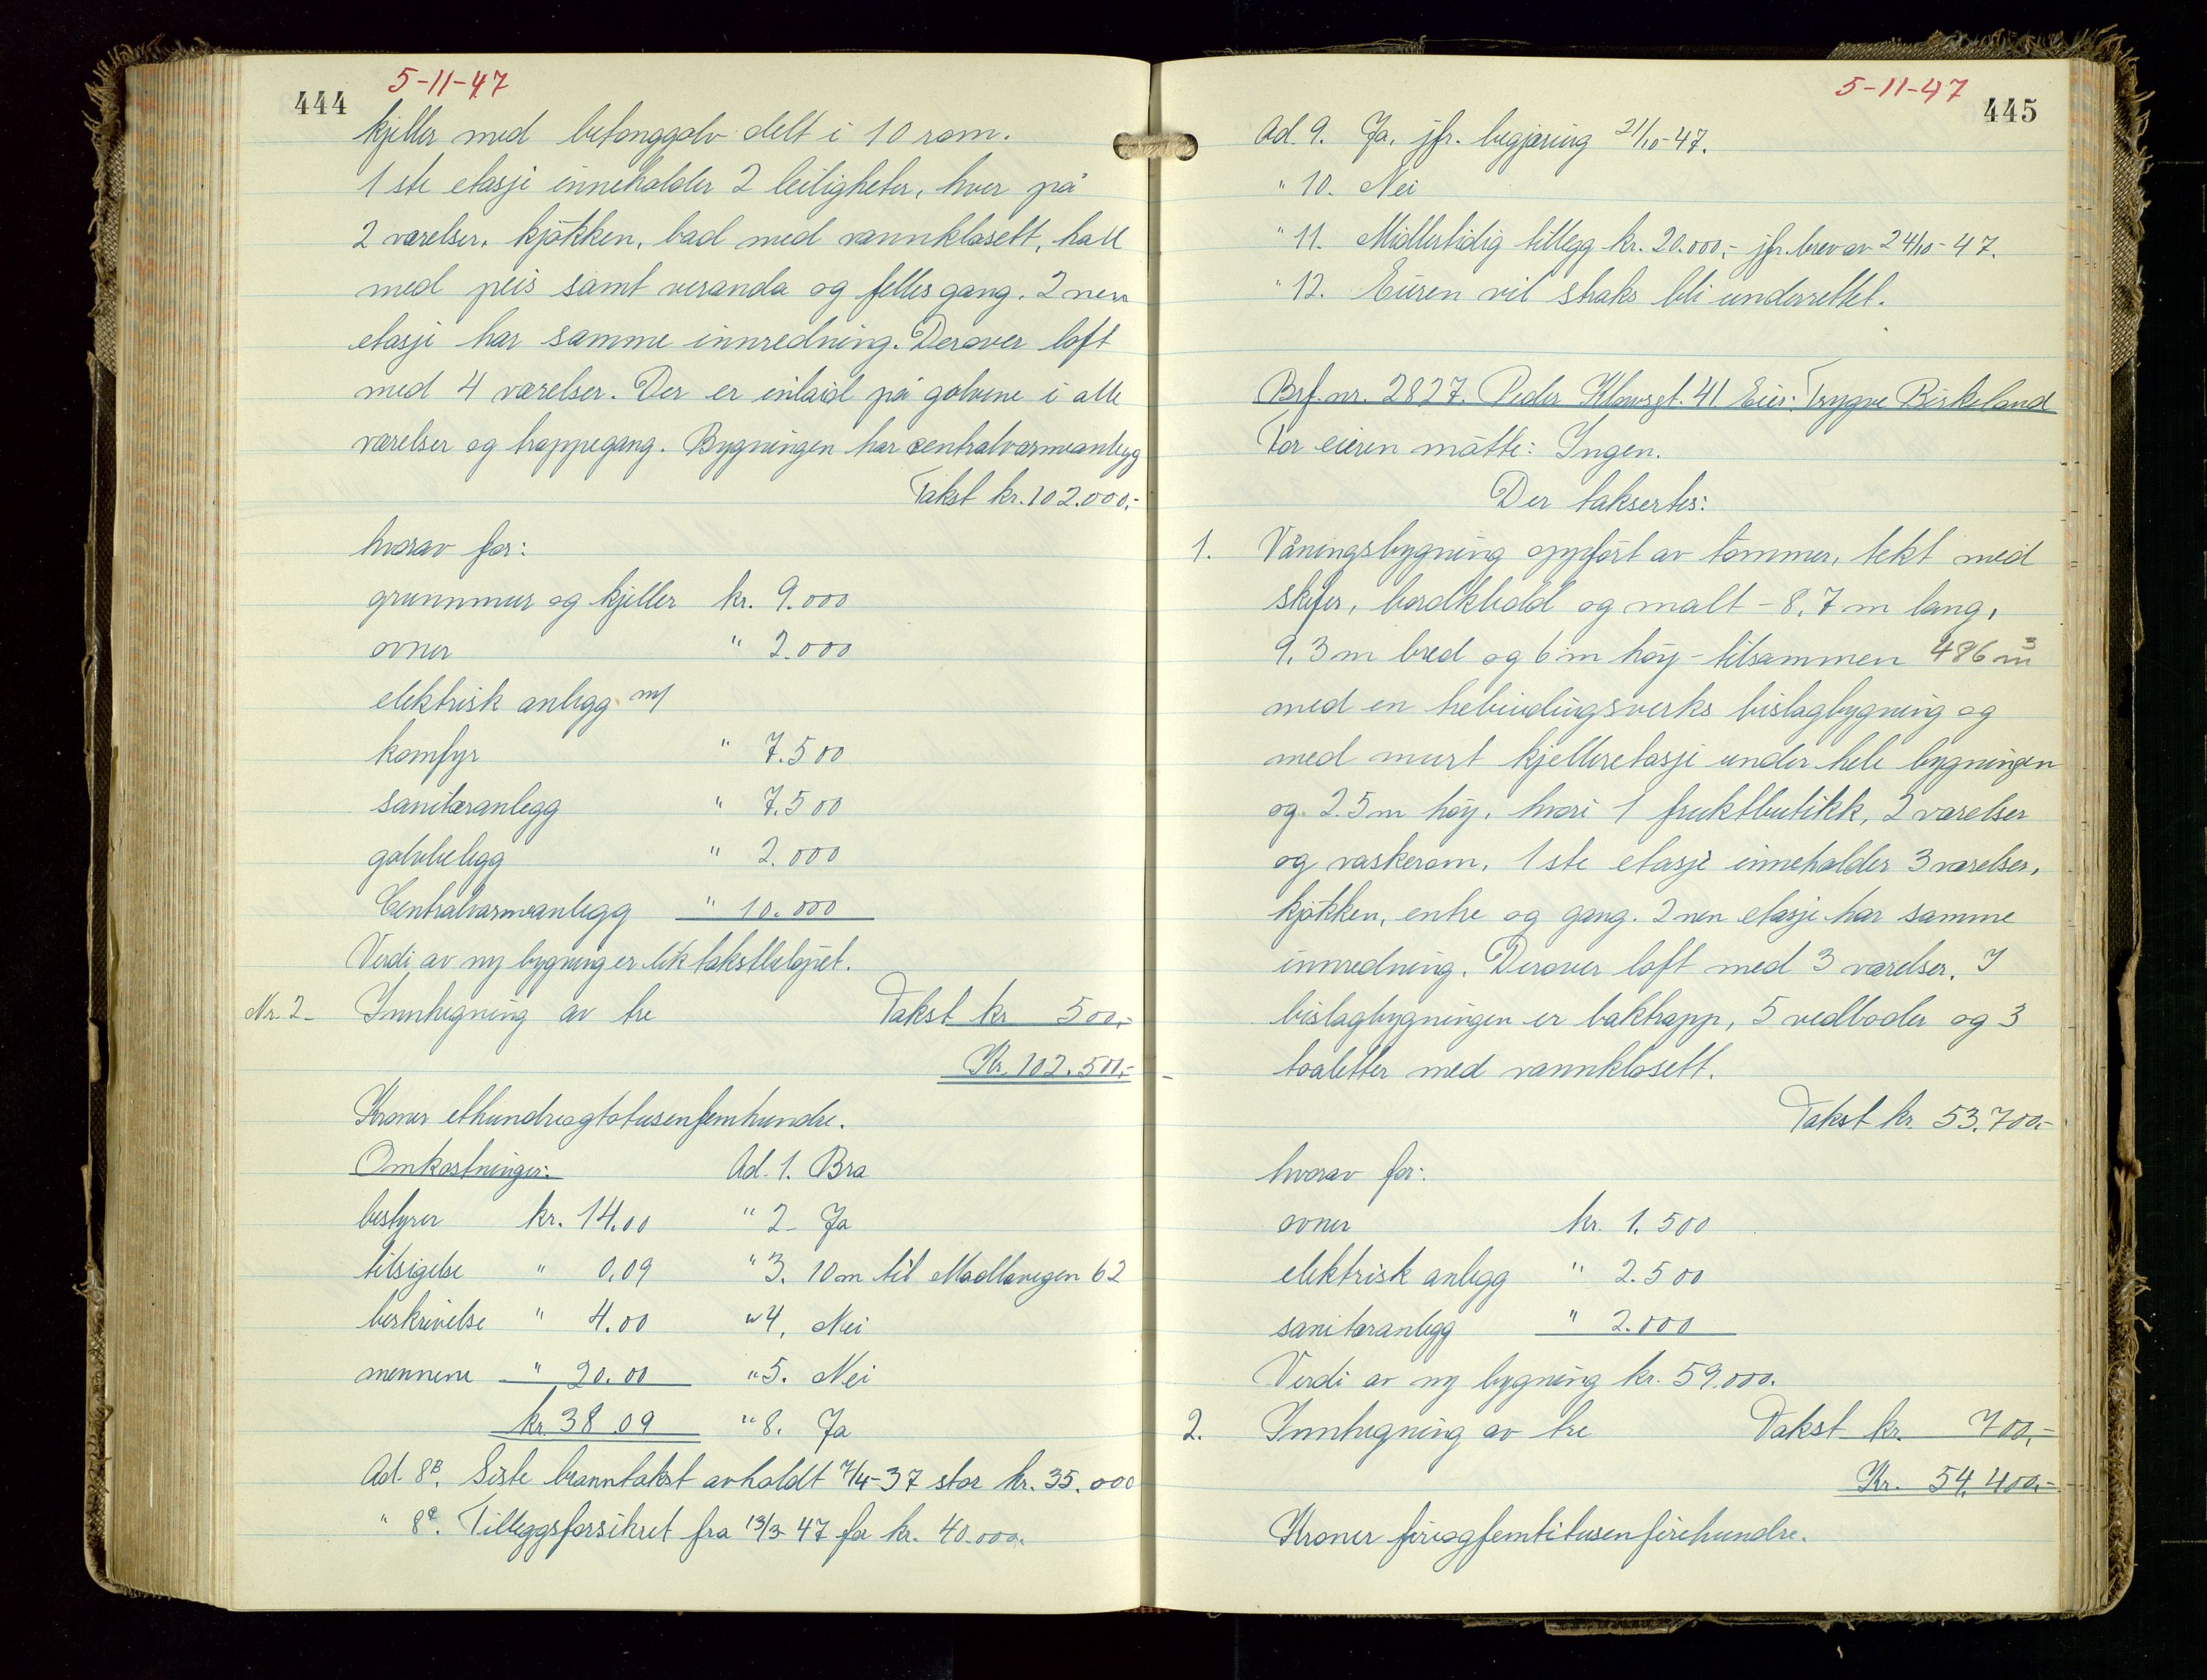 444
5-11-47
kjeller med betonggolv delt i 10 rom.
1ste etasje inneholder 2 leiligheter, hver på
2 værelser, kjøkken, bad med vannklosett, hall
med peis samt veranda og felles gang. 2nen
etasje har samme innredning. Derover loft
med 4 værelser. Der er inlaid på golvene i alle
værelser og trappegang. Bygningen har centralvarmeanlegg
Takst kr. 102.000,-
hvorav for:
grunnmur og kjeller kr. 9.000
ovner " 2.000
elektrisk anlegg m/
komfyr " 7.500
sanitæranlegg " 7.500
golvbelegg " 2.000
Centralvarmeanlegg " 10.000
Verdi av ny bygning er lik takstbeløpet.
Nr. 2- Innhegning av tre Takst kr 500,-
Kr. 102.500,-
Kroner ethundreogtotusenfemhundre.
Omkostninger: Ad. 1. Bra
bestyrer kr. 14.00 " 2- Ja
tilsigelse " 0,09 " 3. 10m til Madlaveigen 62
beskrivelse " 4.00 " 4. Nei
mennene " 20.00 " 5. Nei
kr. 38.09 " 8. Ja
Ad 8B. Siste branntakst avholdt 7/4-37 stor kr. 35.000
" 8c. Tilleggsforsikret fra 13/3-47 for kr. 40.000.
5-11-47
445
Ad. 9. Ja, jfr. begjæring 21/10-47.
" 10. Nei
" 11. Midlertidig tillegg kr. 20.000,- jfr. brev av 24/10-47.
" 12. Eieren vil straks bli underrettet.
Brf. nr. 2827. Peder Klowsgt. 41. Eier: Trygve Birkeland
For eieren møtte: Ingen.
Der taksertes:
1. Våningsbygning oppført av tømmer, tekt med
skifer, bordkledd og malt - 8,7 m lang,
9,3 m bred og 6 m høy - tilsammen 486 m3
med en trebindingsverks bislagbygning og
med murt kjelleretasje under hele bygningen
og 2.5 m høy, hvori 1 fruktbutikk, 2 værelser
og vaskerom, 1ste etasje inneholder 3 værelser,
kjøkken, entre og gang. 2nen etasje har samme
innredning. Derover loft med 3 værelser. I
bislagbygningen er baktrapp, 5 vedboder og 3
toaletter med vannklosett.
Takst kr. 53.700,-
hvorav for:
ovner kr. 1.500
elektrisk anlegg " 2.500
sanitæranlegg " 2.000
Verdi av ny bygning kr. 59.000.
2. Innhegning av tre Takst kr. 700,-
Kr. 54.400,-
Kroner fireogfemtitusenfirehundre.